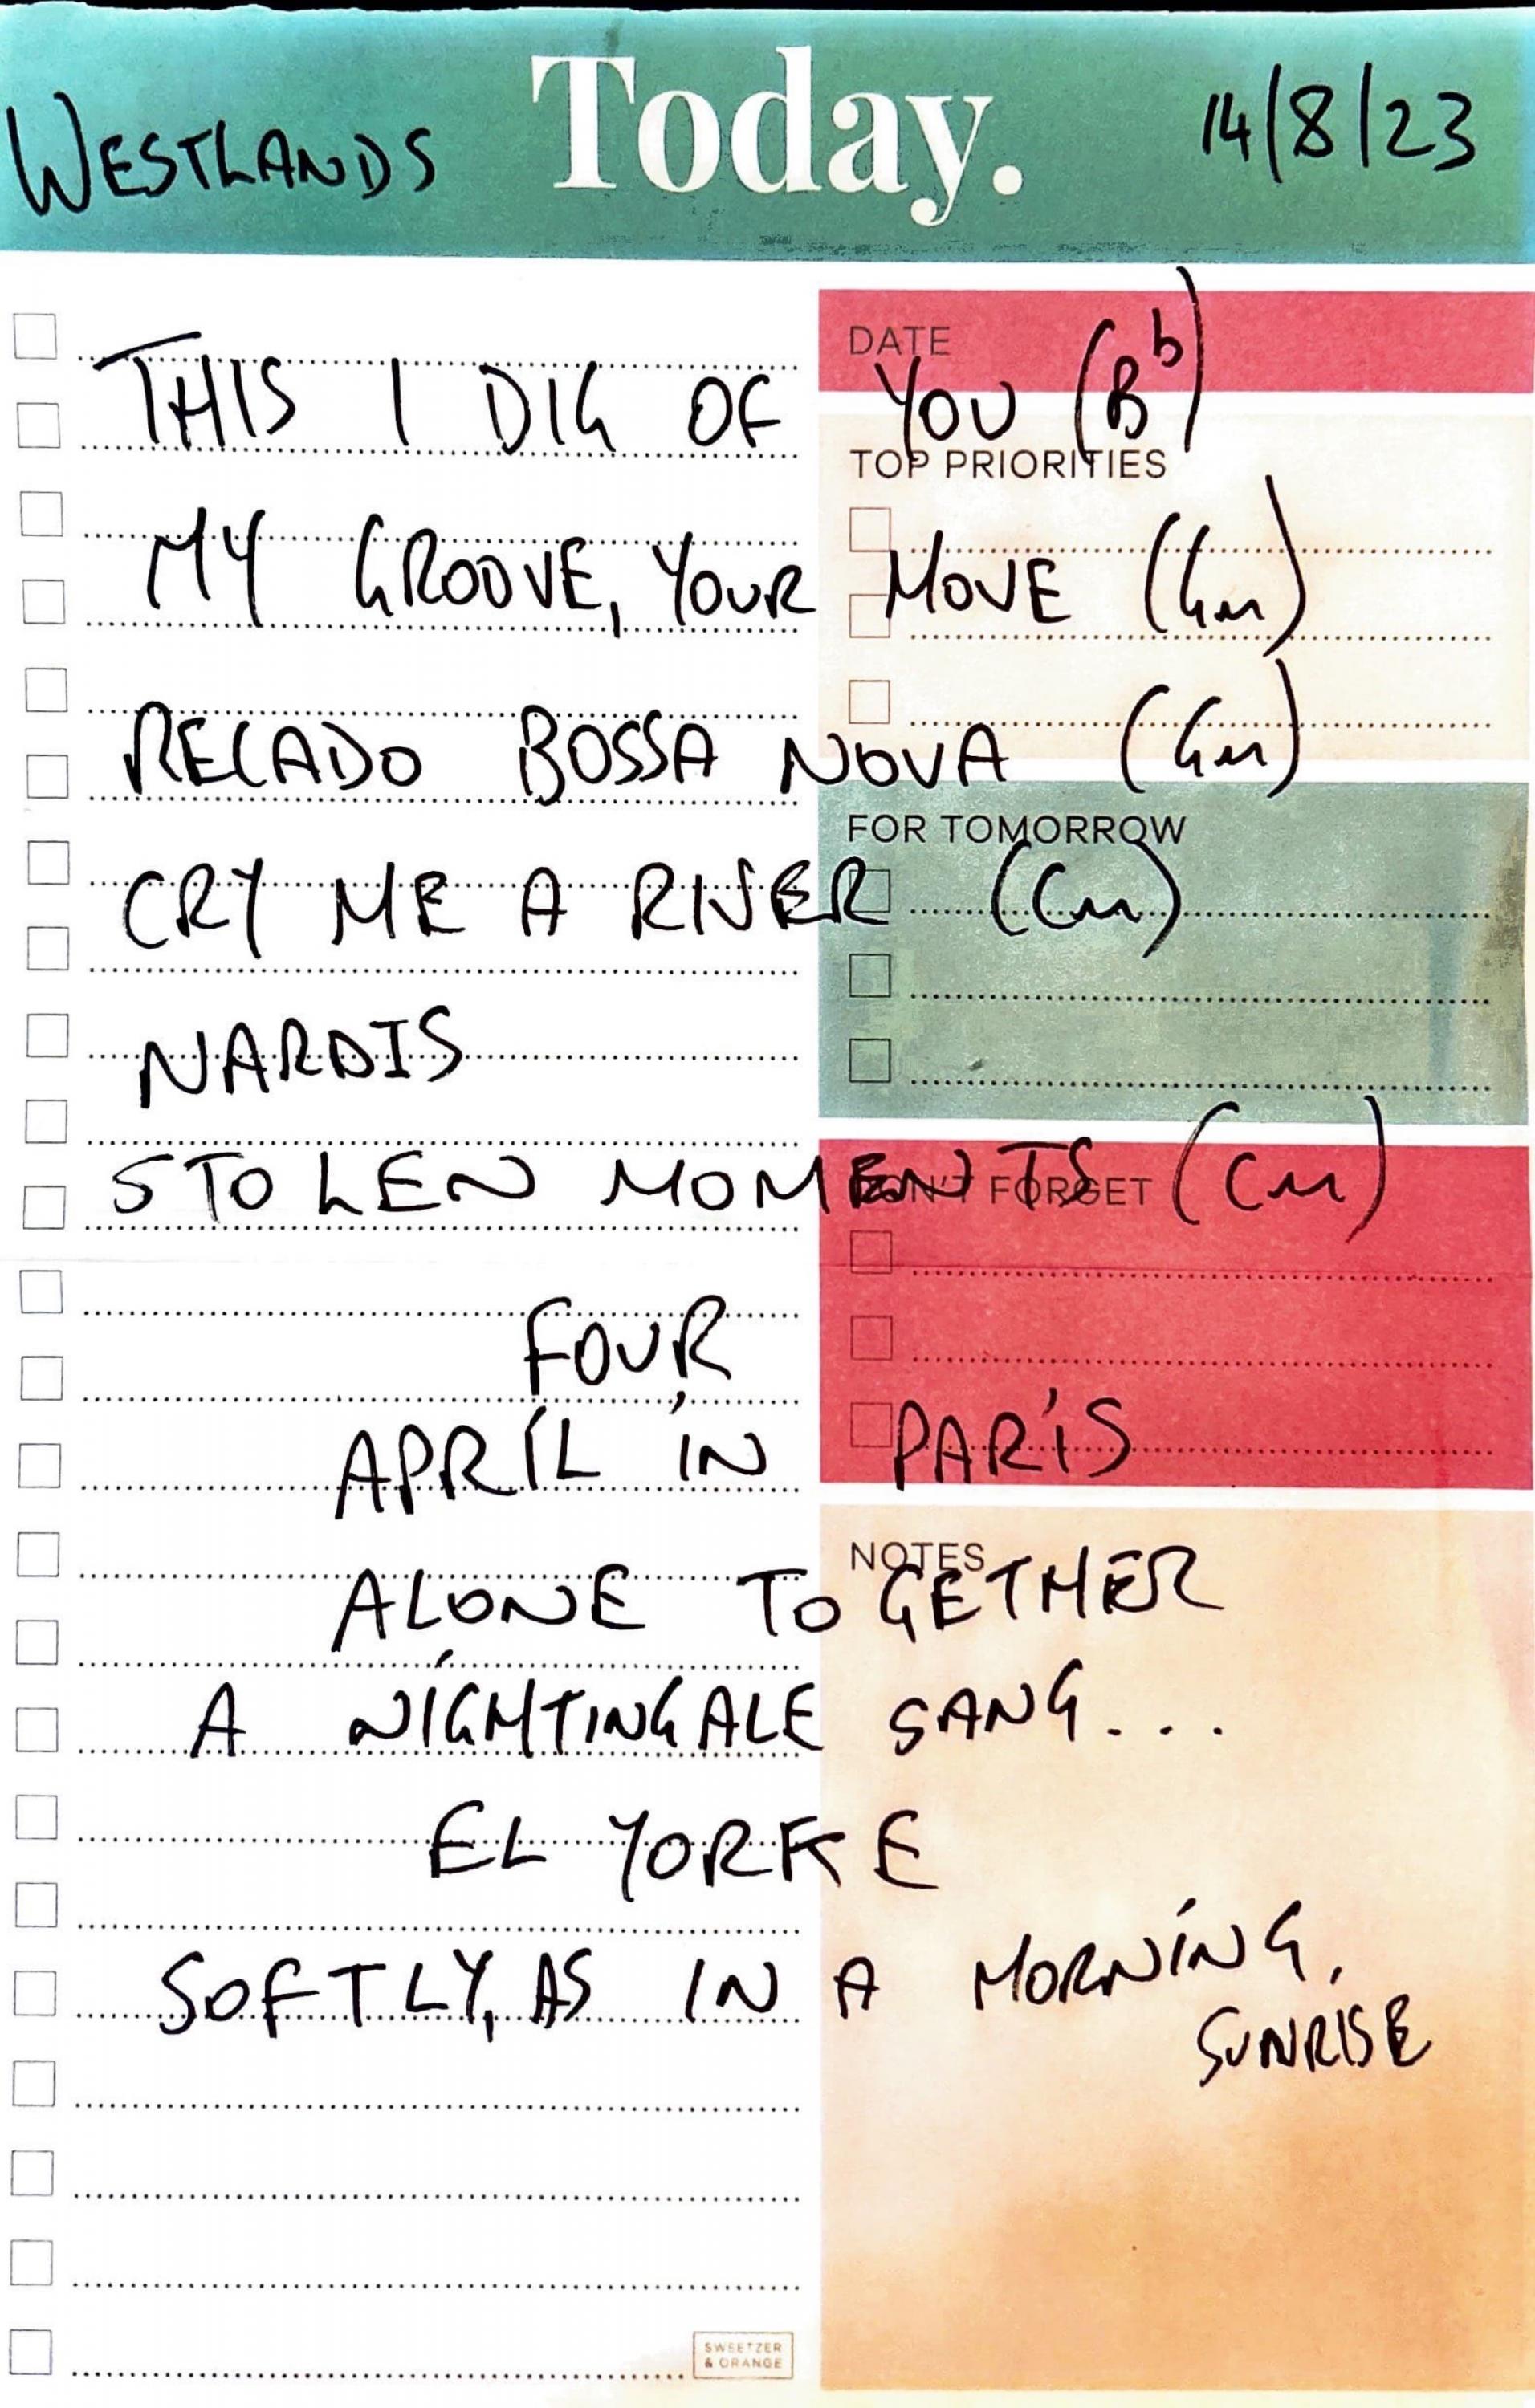 Today.
WESTLANDS
14/8/23
DATE
THIS I DIG OF YOU (Bb)
TOP PRIORITIES
MY GROOVE, YOUR MOVE (Gm)
RECADO BOSSA NOVA (Gm)
FOR TOMORROW
CRY ME A RIVER (Cm)
NARDIS
STOLEN MOMENTS (Cm)
DON'T FORGET
FOUR
APRIL IN PARIS
NOTES
ALONE TOGETHER
A NIGHTINGALE SANG...
EL YORKE
SOFTLY, AS IN A MORNING
SUNRISE
SWEETZER
& ORANGE